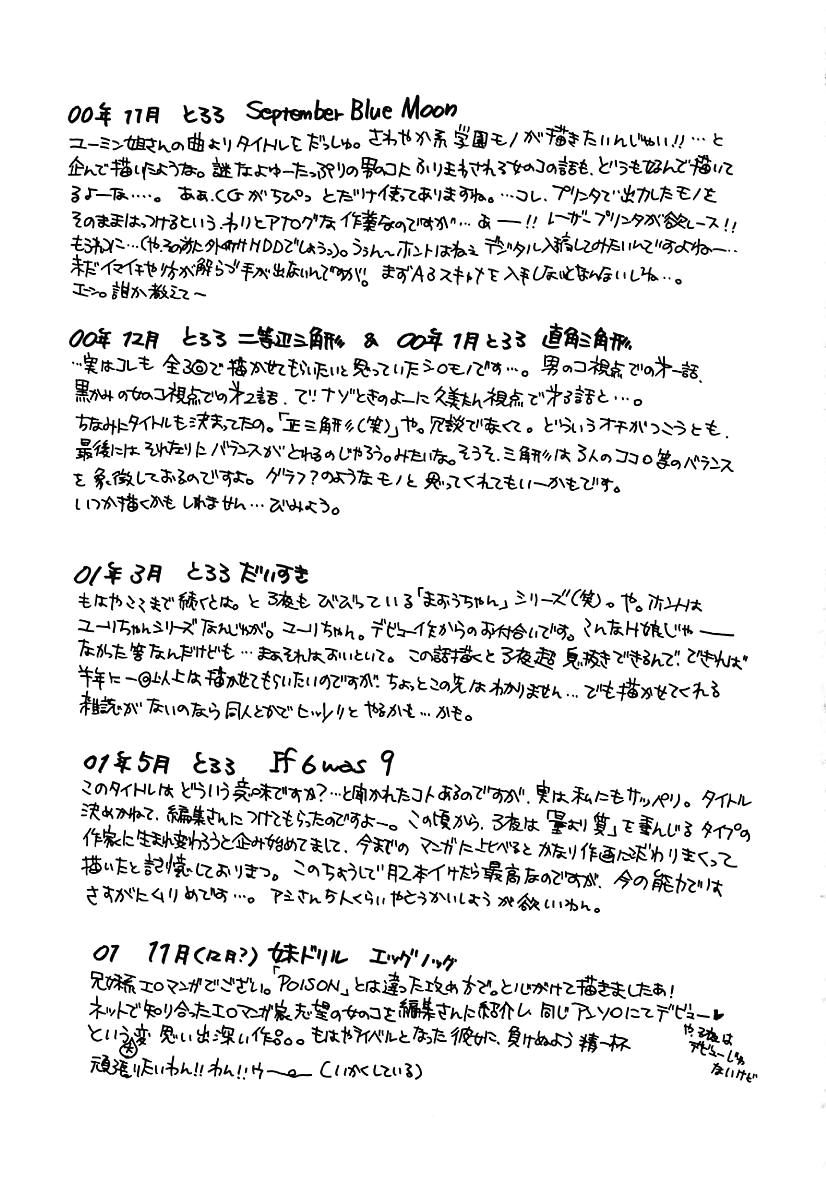 00年11月 とろろ September Blue Moon
ユーミン姐さんの曲よりタイトルをだっしゅ。さわやか系学園モノが描きたいんじゃい!!…と
企んで描いたような。謎なよゆーたっぷりの男のコにふりまわされる女のコの話も、どうもなんで描いて
るよーな…。 ああ、CGがちぴっとだけ使ってありますね。…コレ、プリンタで出力したモノを
そのままはっつけるという、わりとアナログな作業なのですが…あー!!レーザープリンタが欲しース!!
もろれに…(や、その前に外付けHDDでしょうっ)。うぅん〜ホントはねぇデジタル入稿してみたいんですよねー‥
未だイマイチやり方が解らづ手が出ないんですが。まずA3スキャナを入手しないとなんないしね…。
エーン。誰か教えて〜
00年12月 とろろ 二等辺三角形 & 00年1月とろろ 直角三角形
…実はコレも全3回で描かせてもらいたいと思っていたシロモノです…。男のコ視点での第一話、
黒かみの女のコ視点での第2話、で!ナゾときのよーに久美たん視点で第3話と…。
ちなみにタイトルも決まってたの。「正三角形(笑)」や。冗談でなくて。どういうオチがつこうとも、
最後にはそれなりにバランスがとれるのじゃろう。みたいな。そうそ、三角形は3人のココロ等のバランス
を象徴しておるのですよ。グラフ?のようなモノと思ってくれてもいーかもです。
いつか描くかもしれません…びみょう。
01年3月 とろろ だいすき
もはやここまで続くとは。と子夜もびびっている「まおうちゃん」シリーズ(笑)。や。ホントは
ユーリちゃんシリーズなんじゃが。ユーリちゃん。デビュー作からのお付合いです。こんなH娘じゃー
なかった筈なんだけども…まぁそれはおいといて。この話描くと子夜超息抜きできるんで、できれば
半年に一回以上は描かせてもらいたいのですが、ちょっとこの先はわかりません…でも描かせてくれる
雑誌がないのなら同人とかでヒッソリとやるかも…かも。
01年5月 とろろ If 6 was 9
このタイトルはどういう意味ですか?…と聞かれたコトあるのですが、実は私にもサッパリ。タイトル
決めかねて、編集さんにつけてもらったのですよー。この頃から、子夜は「量より質」を重んじるタイプの
作家に生まれ変わろうと企み始めてまして、今までのマンガに比べるとかなり作画にこだわりまくって
描いたと記憶しておりまつ。このちょうしで月2本イけたら最高なのですが、今の能力では
さすがにムリめです…。アシさん5人くらいやとうかいしょうが欲いわん。
01 11月(12月?) 妹ドリル エッグノッグ
兄妹系エロマンガでござい。「POISON」とは違った攻め方で。と心がけて描きましたぁ!
ネットで知り合ったエロマンガ家志望の女のコを編集さんに紹介し、同じアンソロにてデビュー♥
という変思い出深い作品。もはやライバルとなった彼女に、負けぬよう精一杯
大
頑張りたいわん!!わん!!ウー (いかくしている)
や、子夜は
デビューじゃ
ないけど